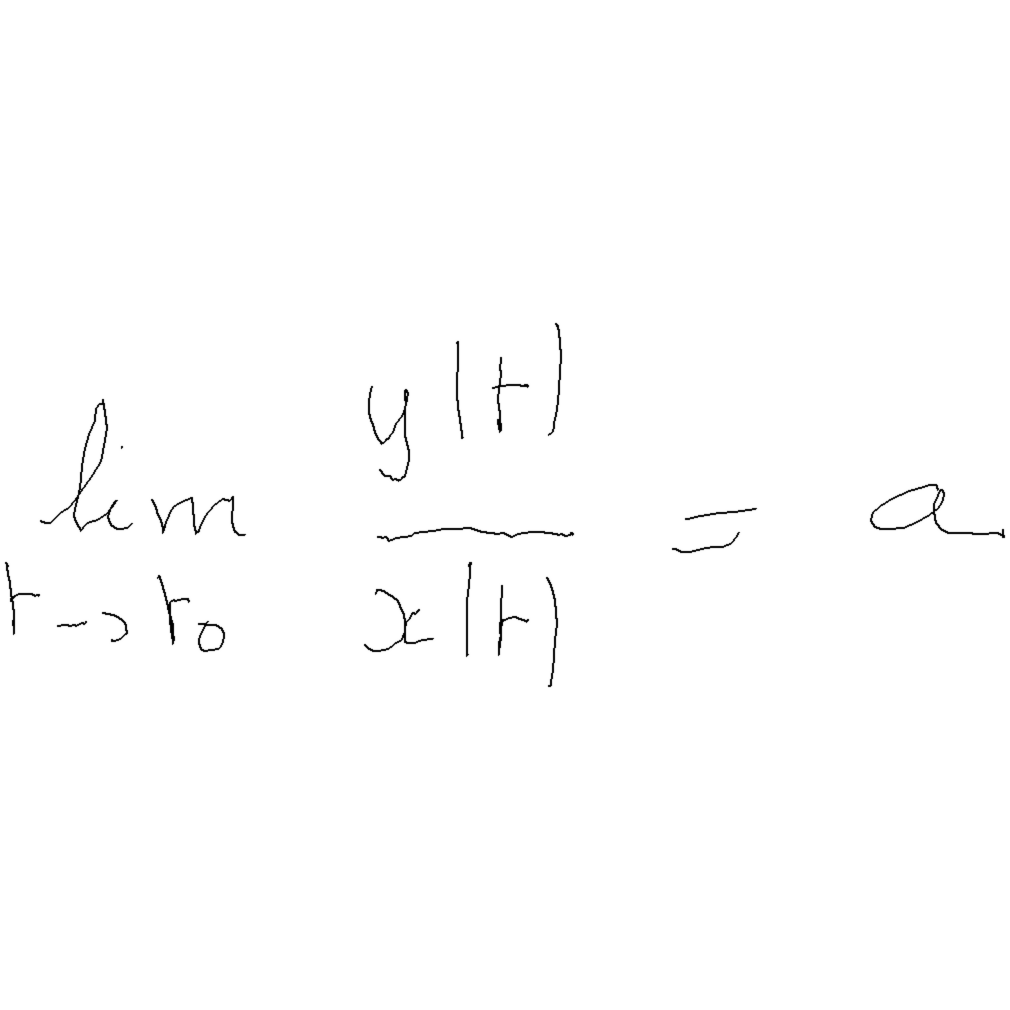 \lim_{t \to t_0} \frac{y(t)}{x(t)} = a